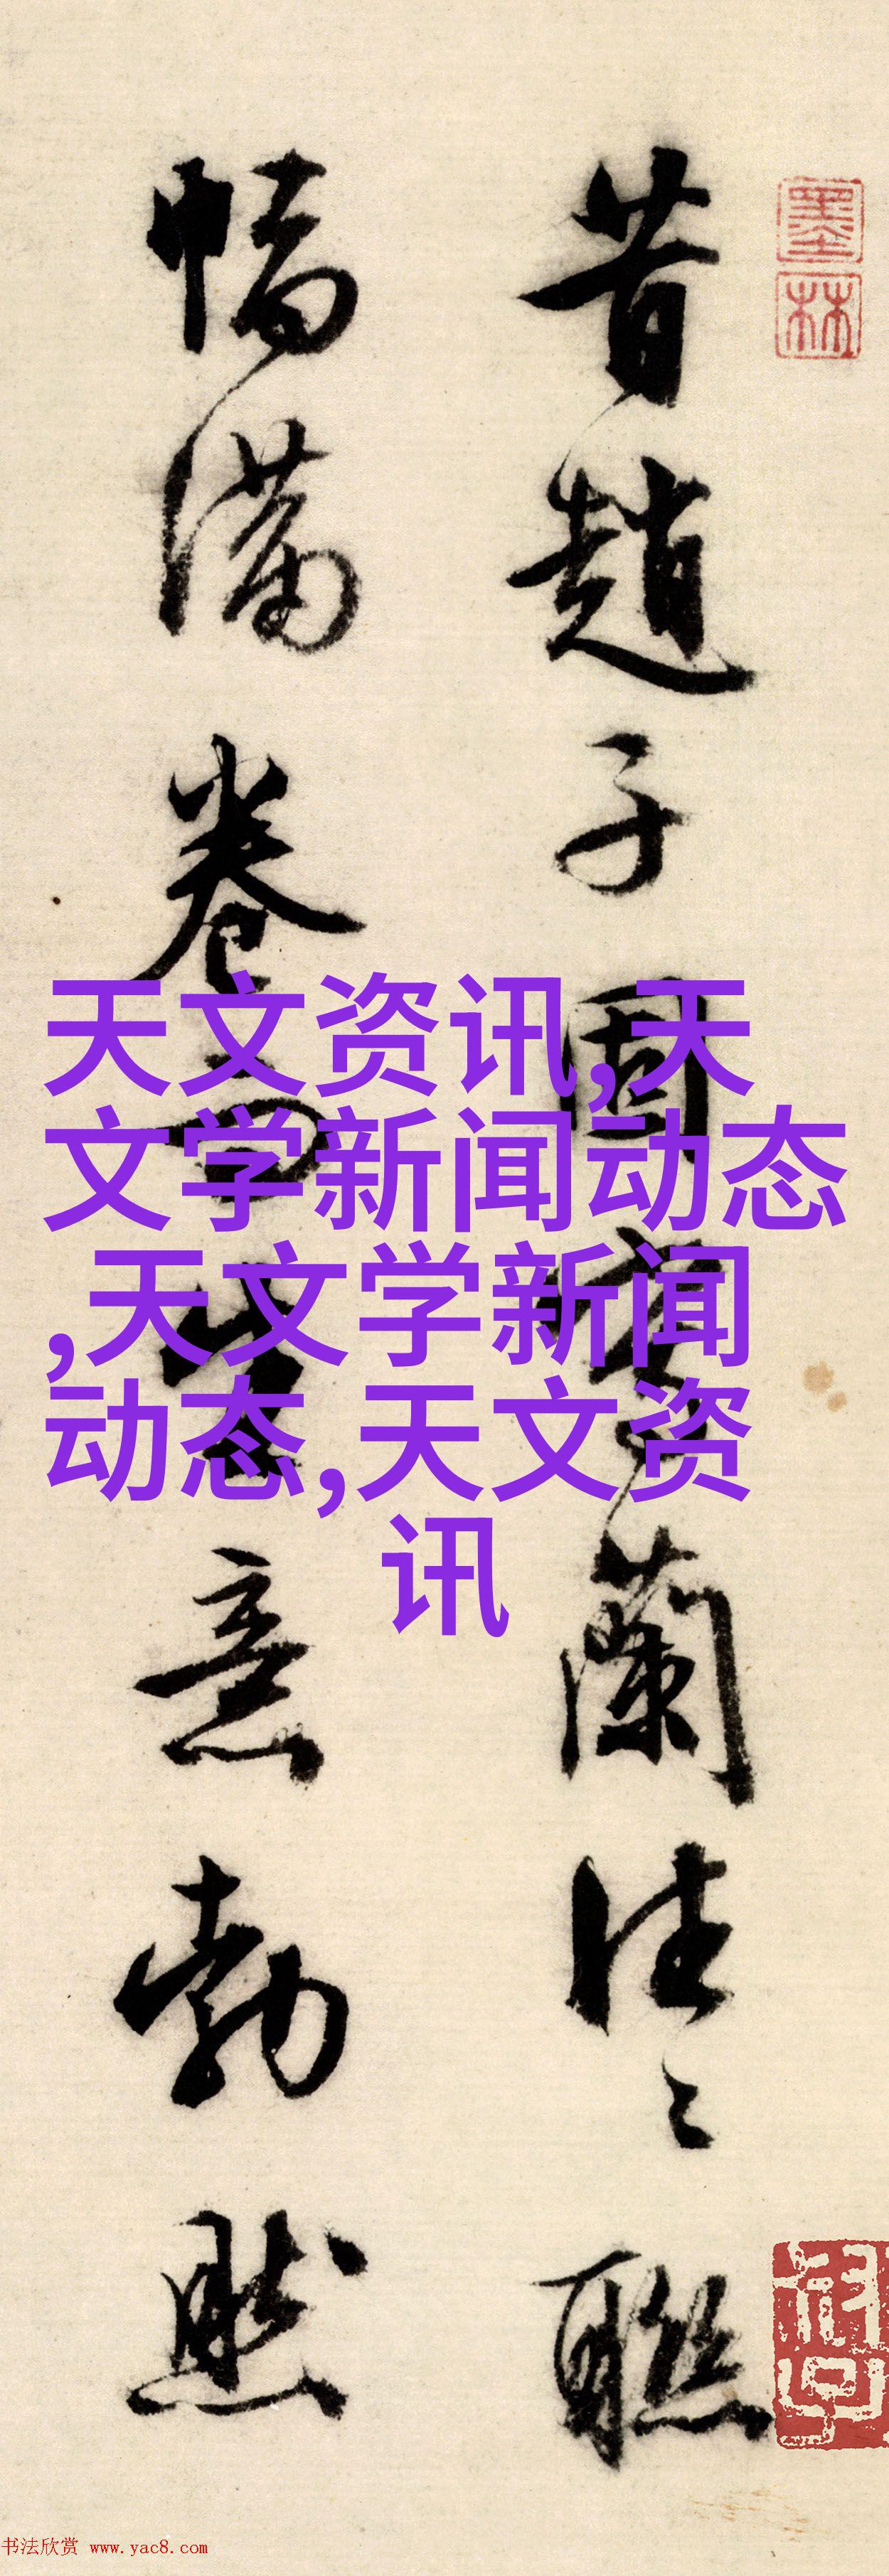 昔趙子固寫蘭往〻聯
幅滿卷而生意勃然
墨林
天文资讯,天
文学新闻动态
,天文学新闻
动态,天文资
讯
书法欣赏 www.yac8.com